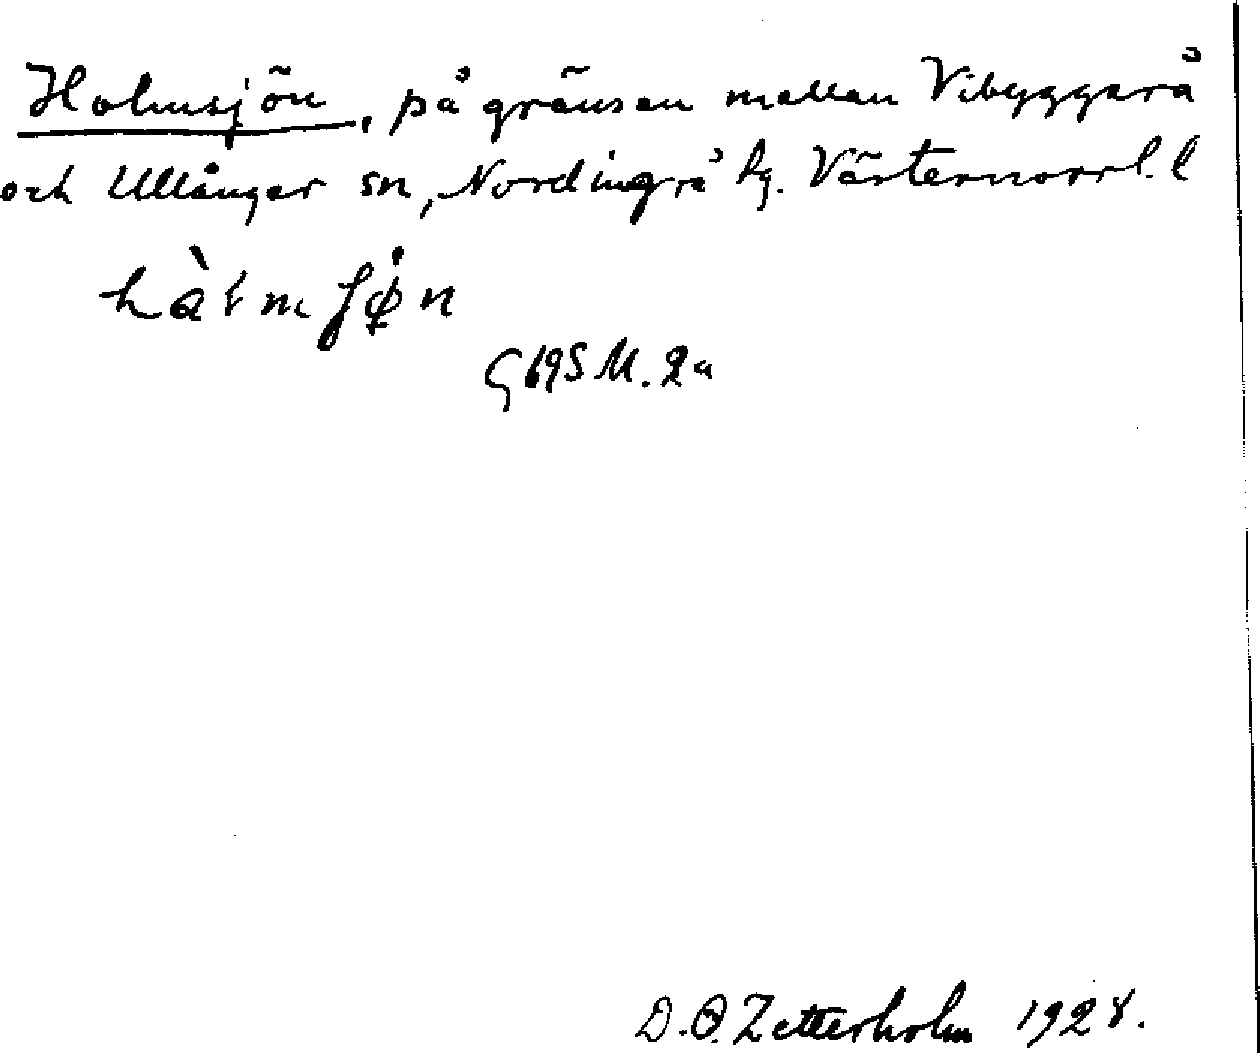 Holmsjön, på gränsen mellan Vibyggerå
och Ullånger sn, Nordingrå tg. Västernorrl. l
D. O. Zetterholm 1928.